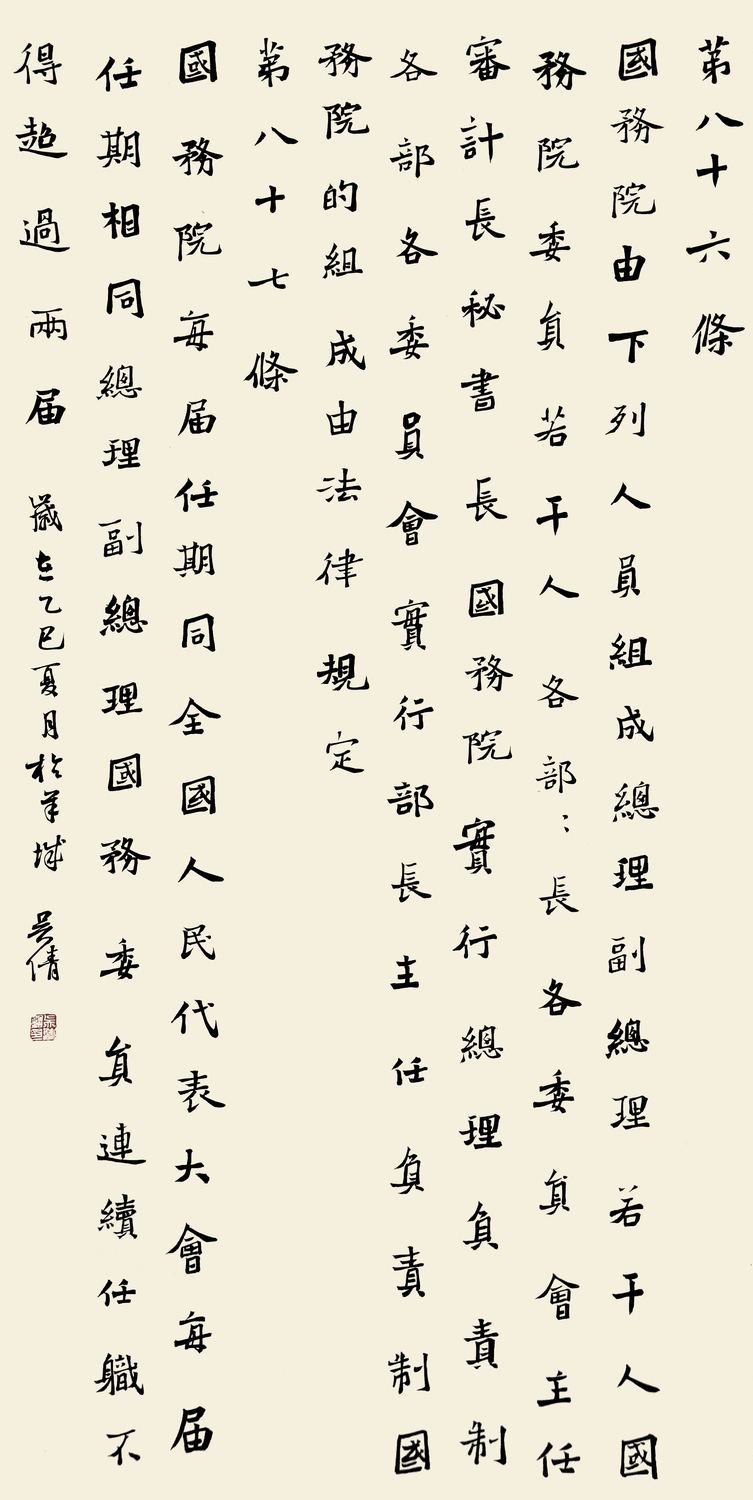 第八十六條
國務院由下列人員組成總理副總理若干人國
務院委員若干人各部〻長各委員會主任
審計長秘書長國務院實行總理負責制
各部各委員會實行部長主任負責制國
務院的組成由法律規定
第八十七條
國務院每届任期同全國人民代表大會每届
任期相同總理副總理國務委員連續任職不
得超過兩届 歲在乙巳夏月於羊城 吴倩